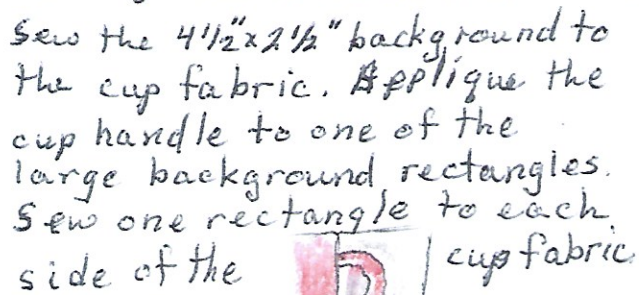 Sew the 4 1/2" x 2 1/2" background to
the cup fabric. Applique the
cup handle to one of the
large background rectangles.
Sew one rectangle to each
side of the cup fabric